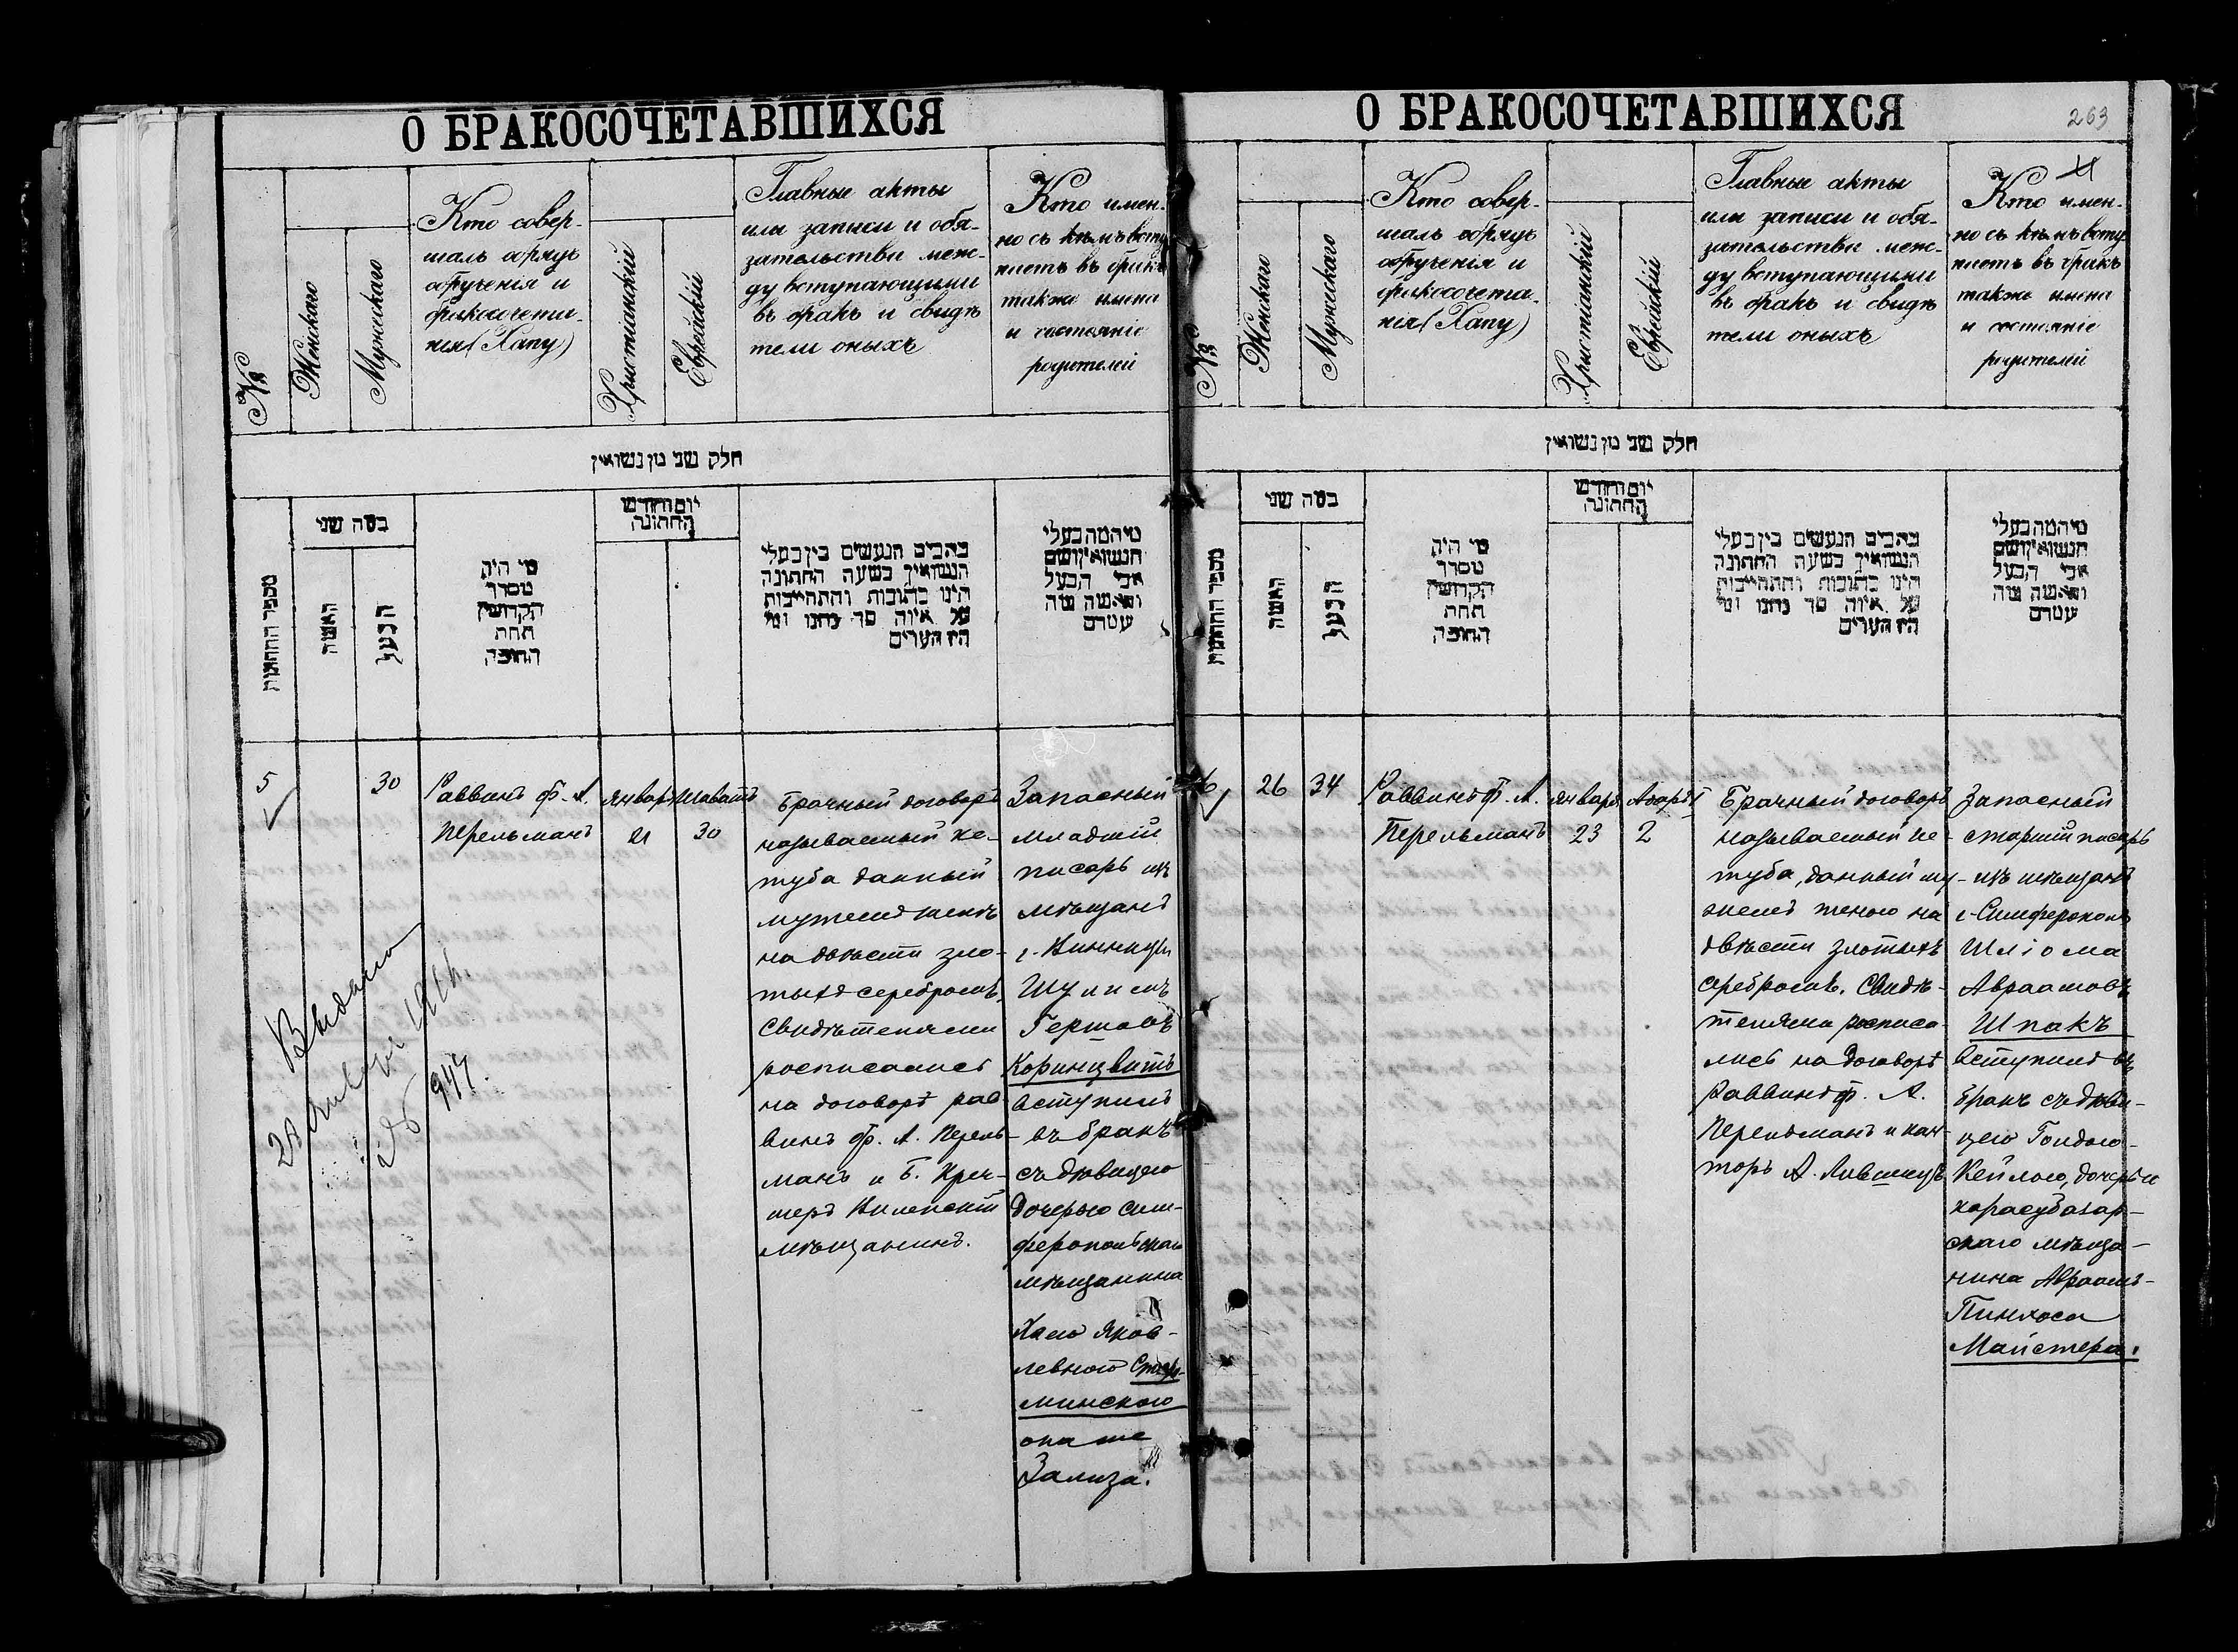 О БРАКОСОЧЕТАВШИХСЯ
№
Женскаго
Мужескаго
Кто совер-
шалъ обрядъ
обрученія и
бракосочета-
нія (Хапу)
Христіанскій
Еврейскій
Главные акты
или записи и обя-
зательства меж-
ду вступающими
въ бракъ и свидѣ
тели оныхъ
Кто имен-
но съ кѣмъ всту
паетъ въ бракъ
также имена
и состояніе
родителей
חלק שני מן נשואין
מספר החתונות
במה שני
האשה
הבעל
מי היה
מסדר
הקדושין
תחת
החופה
יום וחודש
החתונה
כתבים הנעשים בין בעלי
הנשואין בשעה החתונה
היגו כתובות והתחייבות
על איזה סך נתנו ומי
היו העדים
מי המה בעלי
הנשואין ושם
אבי הבעל
והאשה ומה
עטרם
5
30
Раввинъ ф. А.
Перельманъ
Январь
21
Шаватъ
30
Брачный договоръ
называемый ке-
туба данный
мужемъ женѣ
на двѣсти зло-
тыхъ серебромъ,
Свидѣтелями
росписались
на договорѣ рав
винъ ф. А. Перель-
манъ и Б. Креч-
меръ Виленскій
мѣщанинъ.
Запасный
младшій
писарь изъ
мѣщанъ
г. Винницы
Шулимъ
Гершовъ
Коринцвитъ
вступилъ
въ бракъ
съ дѣвицею
дочерью сим-
феропольскаго
мѣщанина
Хаею Яков-
левною
минскою
она же
Зализа.
Выдано
28 1914
№ 947.
О БРАКОСОЧЕТАВШИХСЯ
263
№
Женскаго
Мужескаго
Кто совер-
шалъ обрядъ
обрученія и
бракосочета-
нія (Хапу)
Христіанскій
Еврейскій
Главные акты
или записи и обя-
зательства меж-
ду вступающими
въ бракъ и свидѣ
тели оныхъ
Кто имен-
но съ кѣмъ всту
паетъ въ бракъ
также имена
и состояніе
родителей
חלק שני מן נשואין
מספר החתונות
במה שני
האשה
הבעל
מי היה
מסדר
הקדושין
תחת
החופה
יום וחודש
החתונה
כתבים הנעשים בין בעלי
הנשואין בשעה החתונה
היגו כתובות והתחייבות
על איזה סך נתנו ומי
היו העדים
מי המה בעלי
הנשואין ושם
אבי הבעל
והאשה ומה
עטרם
6
26
34
Раввинъ ф. А.
Перельманъ
Январь
23
Адаръ I
2
Брачный договоръ
называемый ке-
туба, данный му-
жемъ женою на
двѣсти злотыхъ
серебромъ. Свидѣ-
телями росписа-
лись на договорѣ
Раввинъ ф. А.
Перельманъ и кан-
торъ А. Лившицъ
Запасный
старшій писарь
изъ мѣщанъ
г. Симферополь
Шліома
Авраамовъ
Шпакъ
вступилъ въ
бракъ съ дѣви-
цею Гольдою-
Кейлою, дочерью
карасубазар-
скаго мѣща-
нина Авраамъ-
Пинхоса
Майстера.